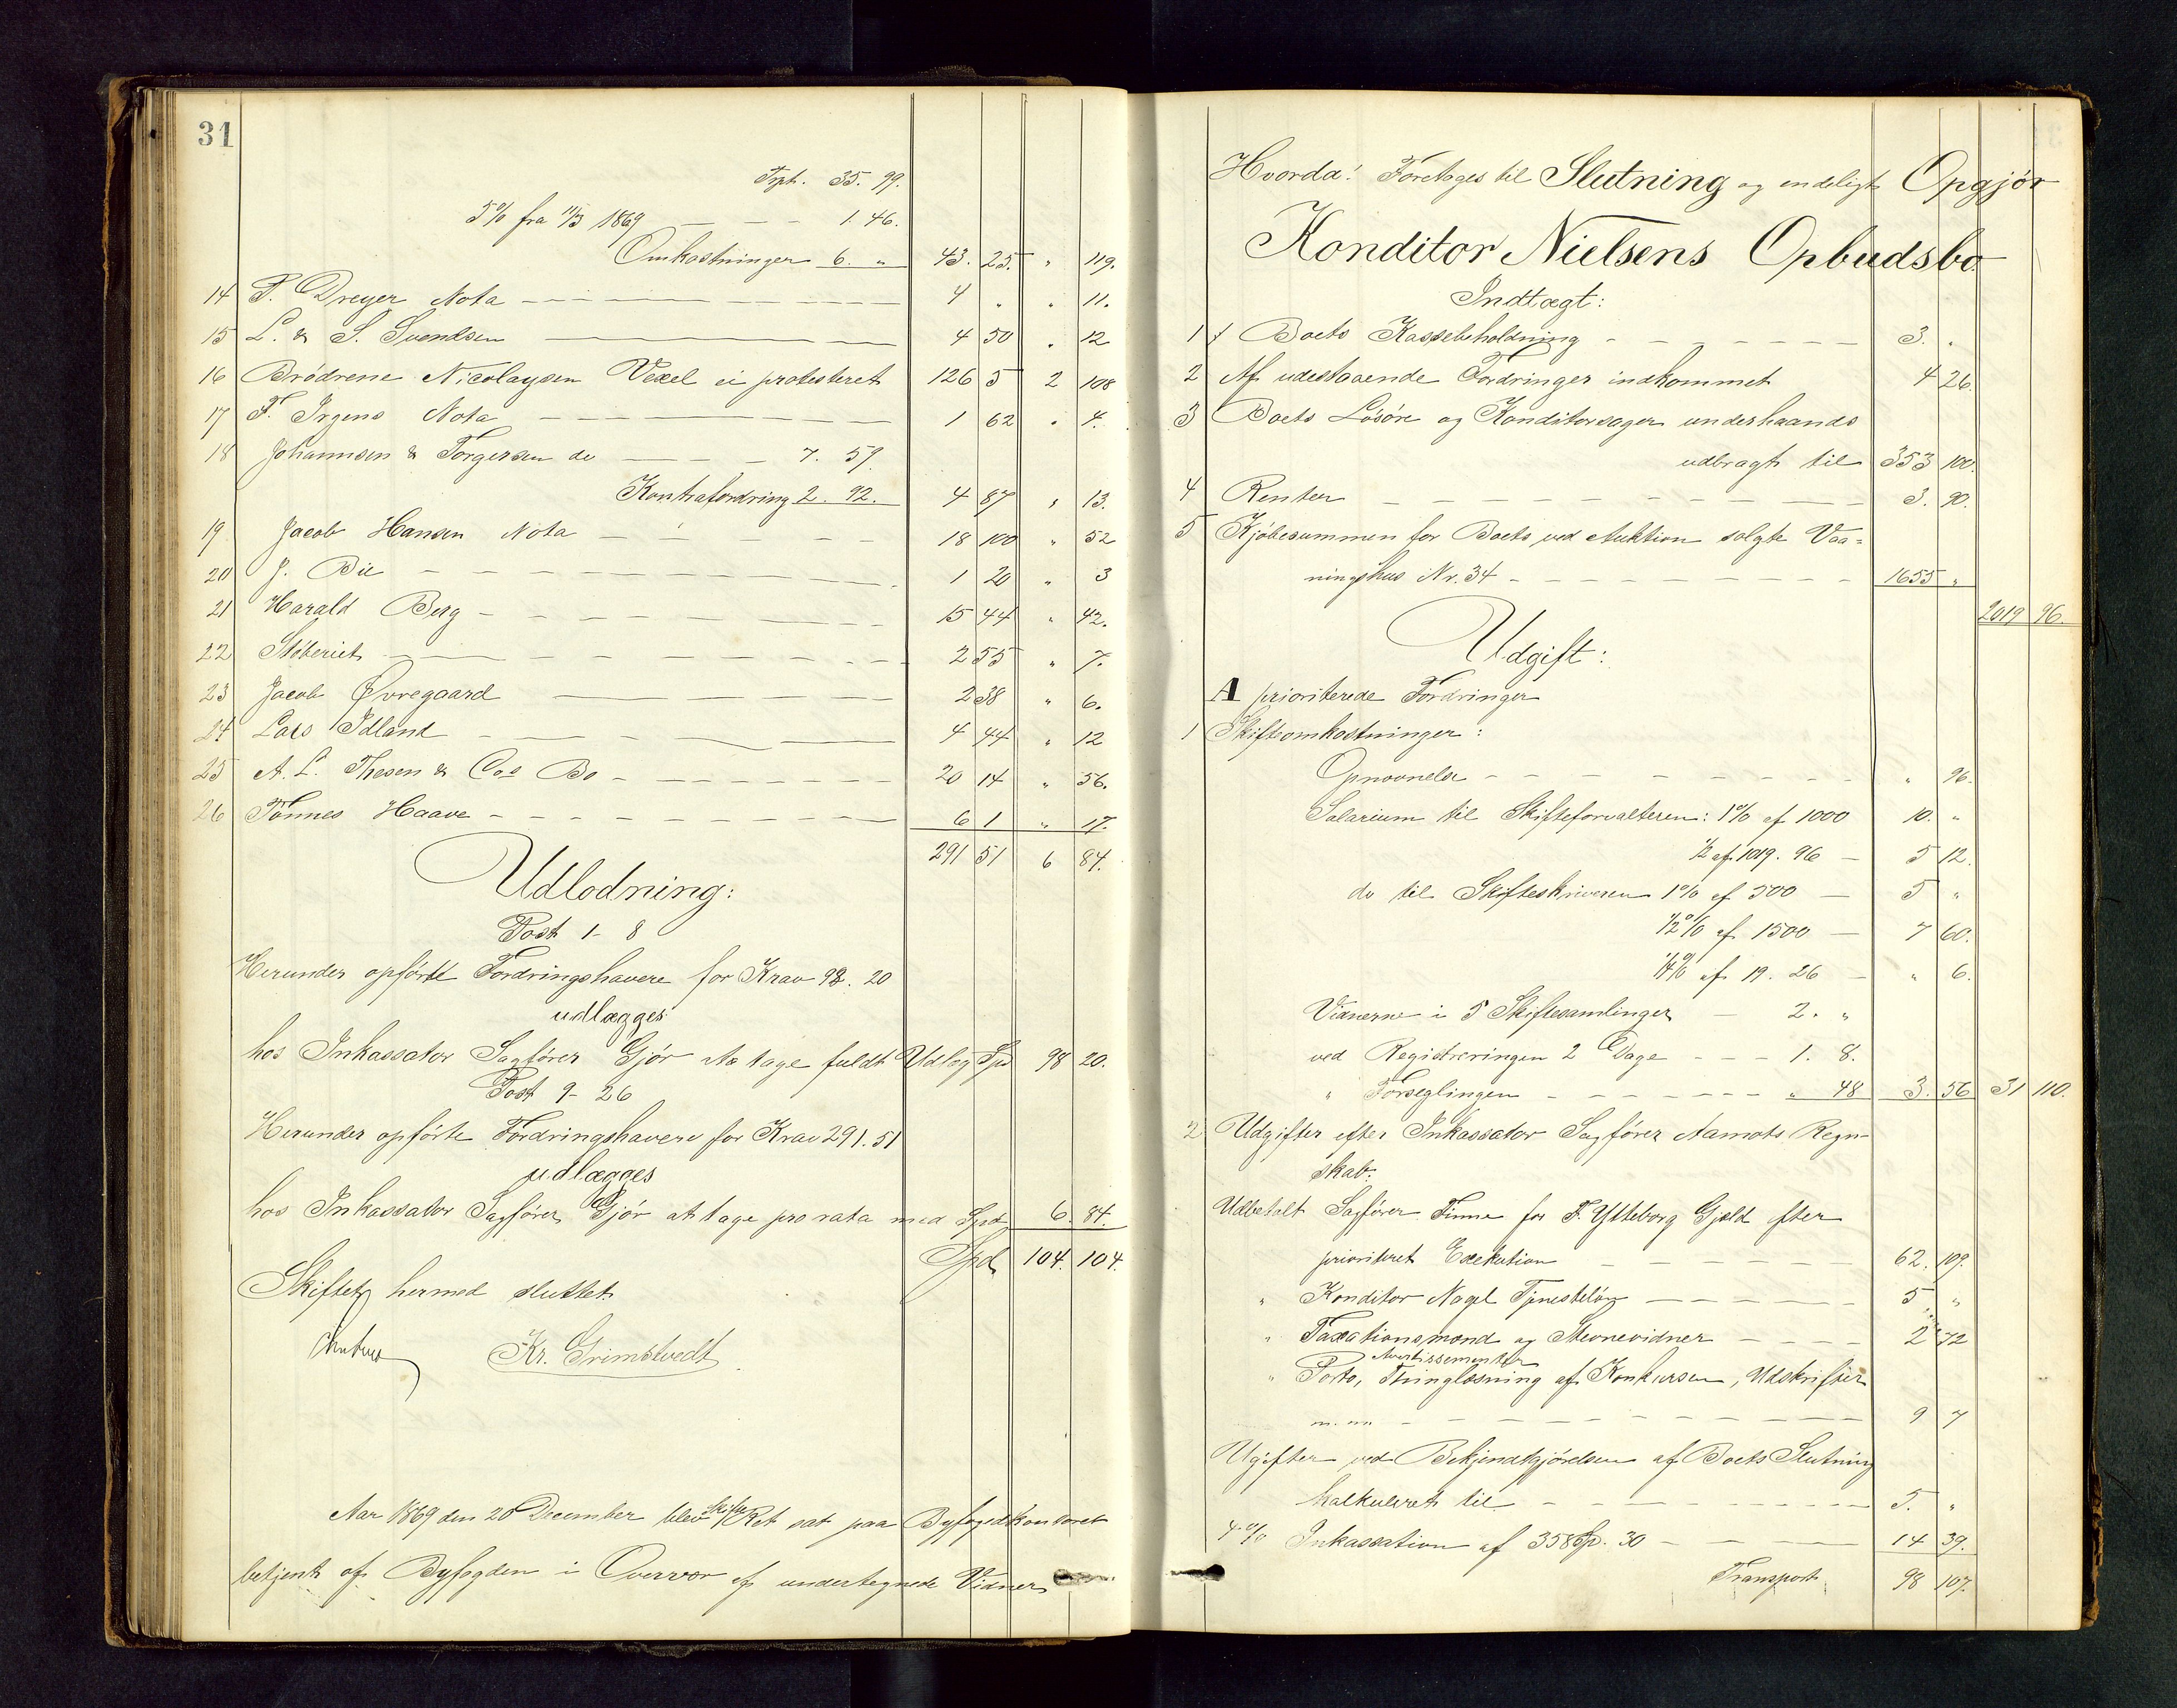 31
Trpt. 35. 99.
5% fra 11/3 1869 — — — 1. 46.
Omkostninger 6. " 43. 25. " 119.
14 P. Dreyer Nota — — — 4 " " 11.
15 L. & S. Svendsen — — — 4 50 " 12
16 Brødrene Nicolaysen Vexel ei protesteret 126 5 2 108
17 F. Irgens Nota — — — 1 62 " 4.
18 Johannsen & Torgersen do — — — 7. 59.
Kontrafordring 2. 92. 4 87 " 13.
19 Jacob Hansen Nota — — — 18 100 " 52
20 J. Bie — — — 1 20 " 3
21 Harald Berg — — — 15 44 " 42.
22 Støberiet — — — 2 55 " 7.
23 Jacob Øvregaard — — — 2 38 " 6.
24 Lars Idland — — — 4 44 " 12
25 A. L. Thesen & Cos Bo — — — 20 14 " 56.
26 Tönnes Haave — — — 6 1 " 17.
291 51 6 84.
Udlodning:
Post 1 - 8
Herunder opførte Fordringshavere for Krav 98. 20
udlægges
hos Inkassator Sagfører Gjør at tage fuldt Udlæg Spd 98 20.
Post 9 - 26
Herunder opførte Fordringshavere for Krav 291. 51
udlægges
hos Inkassator Sagfører Gjør at tage pro rata med Spd 6. 84.
Spd 104. 104.
Skiftet hermed sluttet
Kr. Grimstvedt
Aar 1869 den 20 December blev Skifte Ret sat paa Byfogedkontoret
betjent af Byfogden i Overvær af undertegnede Vidner
Hvorda: Foretoges til Slutning og endeligt Opgjør
Konditor Nielsens Opbudsbo
Indtægt:
1 Boets Kassebeholdning — — — 3. "
2 Af udestaaende Fordringer indkommet 4 26.
3 Boets Løsøre og Konditorsager underhaands
udbragt til 353 100.
4 Renter — — — 3. 90.
5 Kjøbesummen for Boets ved Auktion solgte Vaa=
ningshus Nr. 34 — — — 1655 "
2019 96.
Udgift:
A prioriterede Fordringer
1 Skifteomkostninger:
Opnævnelse — — — " 96.
Salarium til Skifteforvalteren: 1% af 1000 10. "
1/2 af 1019. 96 — 5 12.
do til Skifteskriveren 1% af 500 — 5 "
1/2% af 1500 — 7 60.
1/4% af 19. 26 — " 6.
Vidnerne i 5 Skiftesamlinger — 2. "
ved Registreringen 2 Dage — — — 1. 8.
" Forseglingen — — — " 48 3. 56 31 110.
2 Udgifter efter Inkassator Sagfører Aamots Regn-
skab:
Udbetalt Sagfører Finne for F. Ytteborg Gjæld efter
prioriteret Exekution — — — 62. 109.
" Konditor Nagel Tjenesteløn — — — 5 "
" Taxationsmænd og Stevnevidner — — — 2 72
Avertissementer
" Porto, Thinglæsning af Konkursen, Udskrifter
m. m. — — — 9 7
Ugifter ved Bekjendtgjørelsen af Boets Slutning
kalkuleret til — — — 5. "
4% Inkassation af 358 Sp. 30 — — — 14 39.
Transport 98 107.